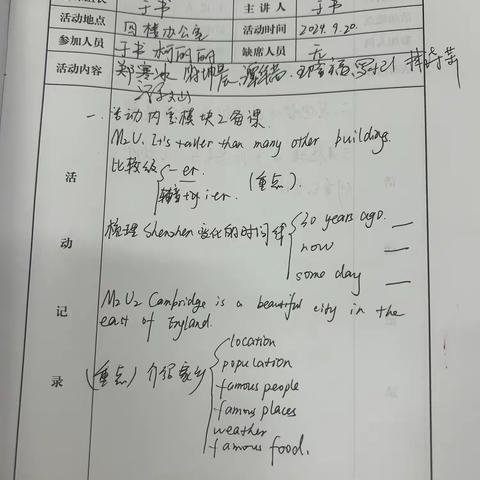 于书 主讲人 于书
活动地点 四楼办公室 活动时间 2024.9.20.
参加人员 于书 柯丽丽 缺席人员 无
活动内容 郑寒冰
一、活动内容模块2备课.
M2U1 It's taller than many other buildings.
比较级 -er
辅音+y ier. (重点).
梳理 Shenzhen 变化的时间线 30 years ago. —
now —
some day —
M2U2 Cambridge is a beautiful city in the
east of England.
(重点) 介绍家乡 location
population
famous people
famous places
weather
famous food.
活
动
记
录